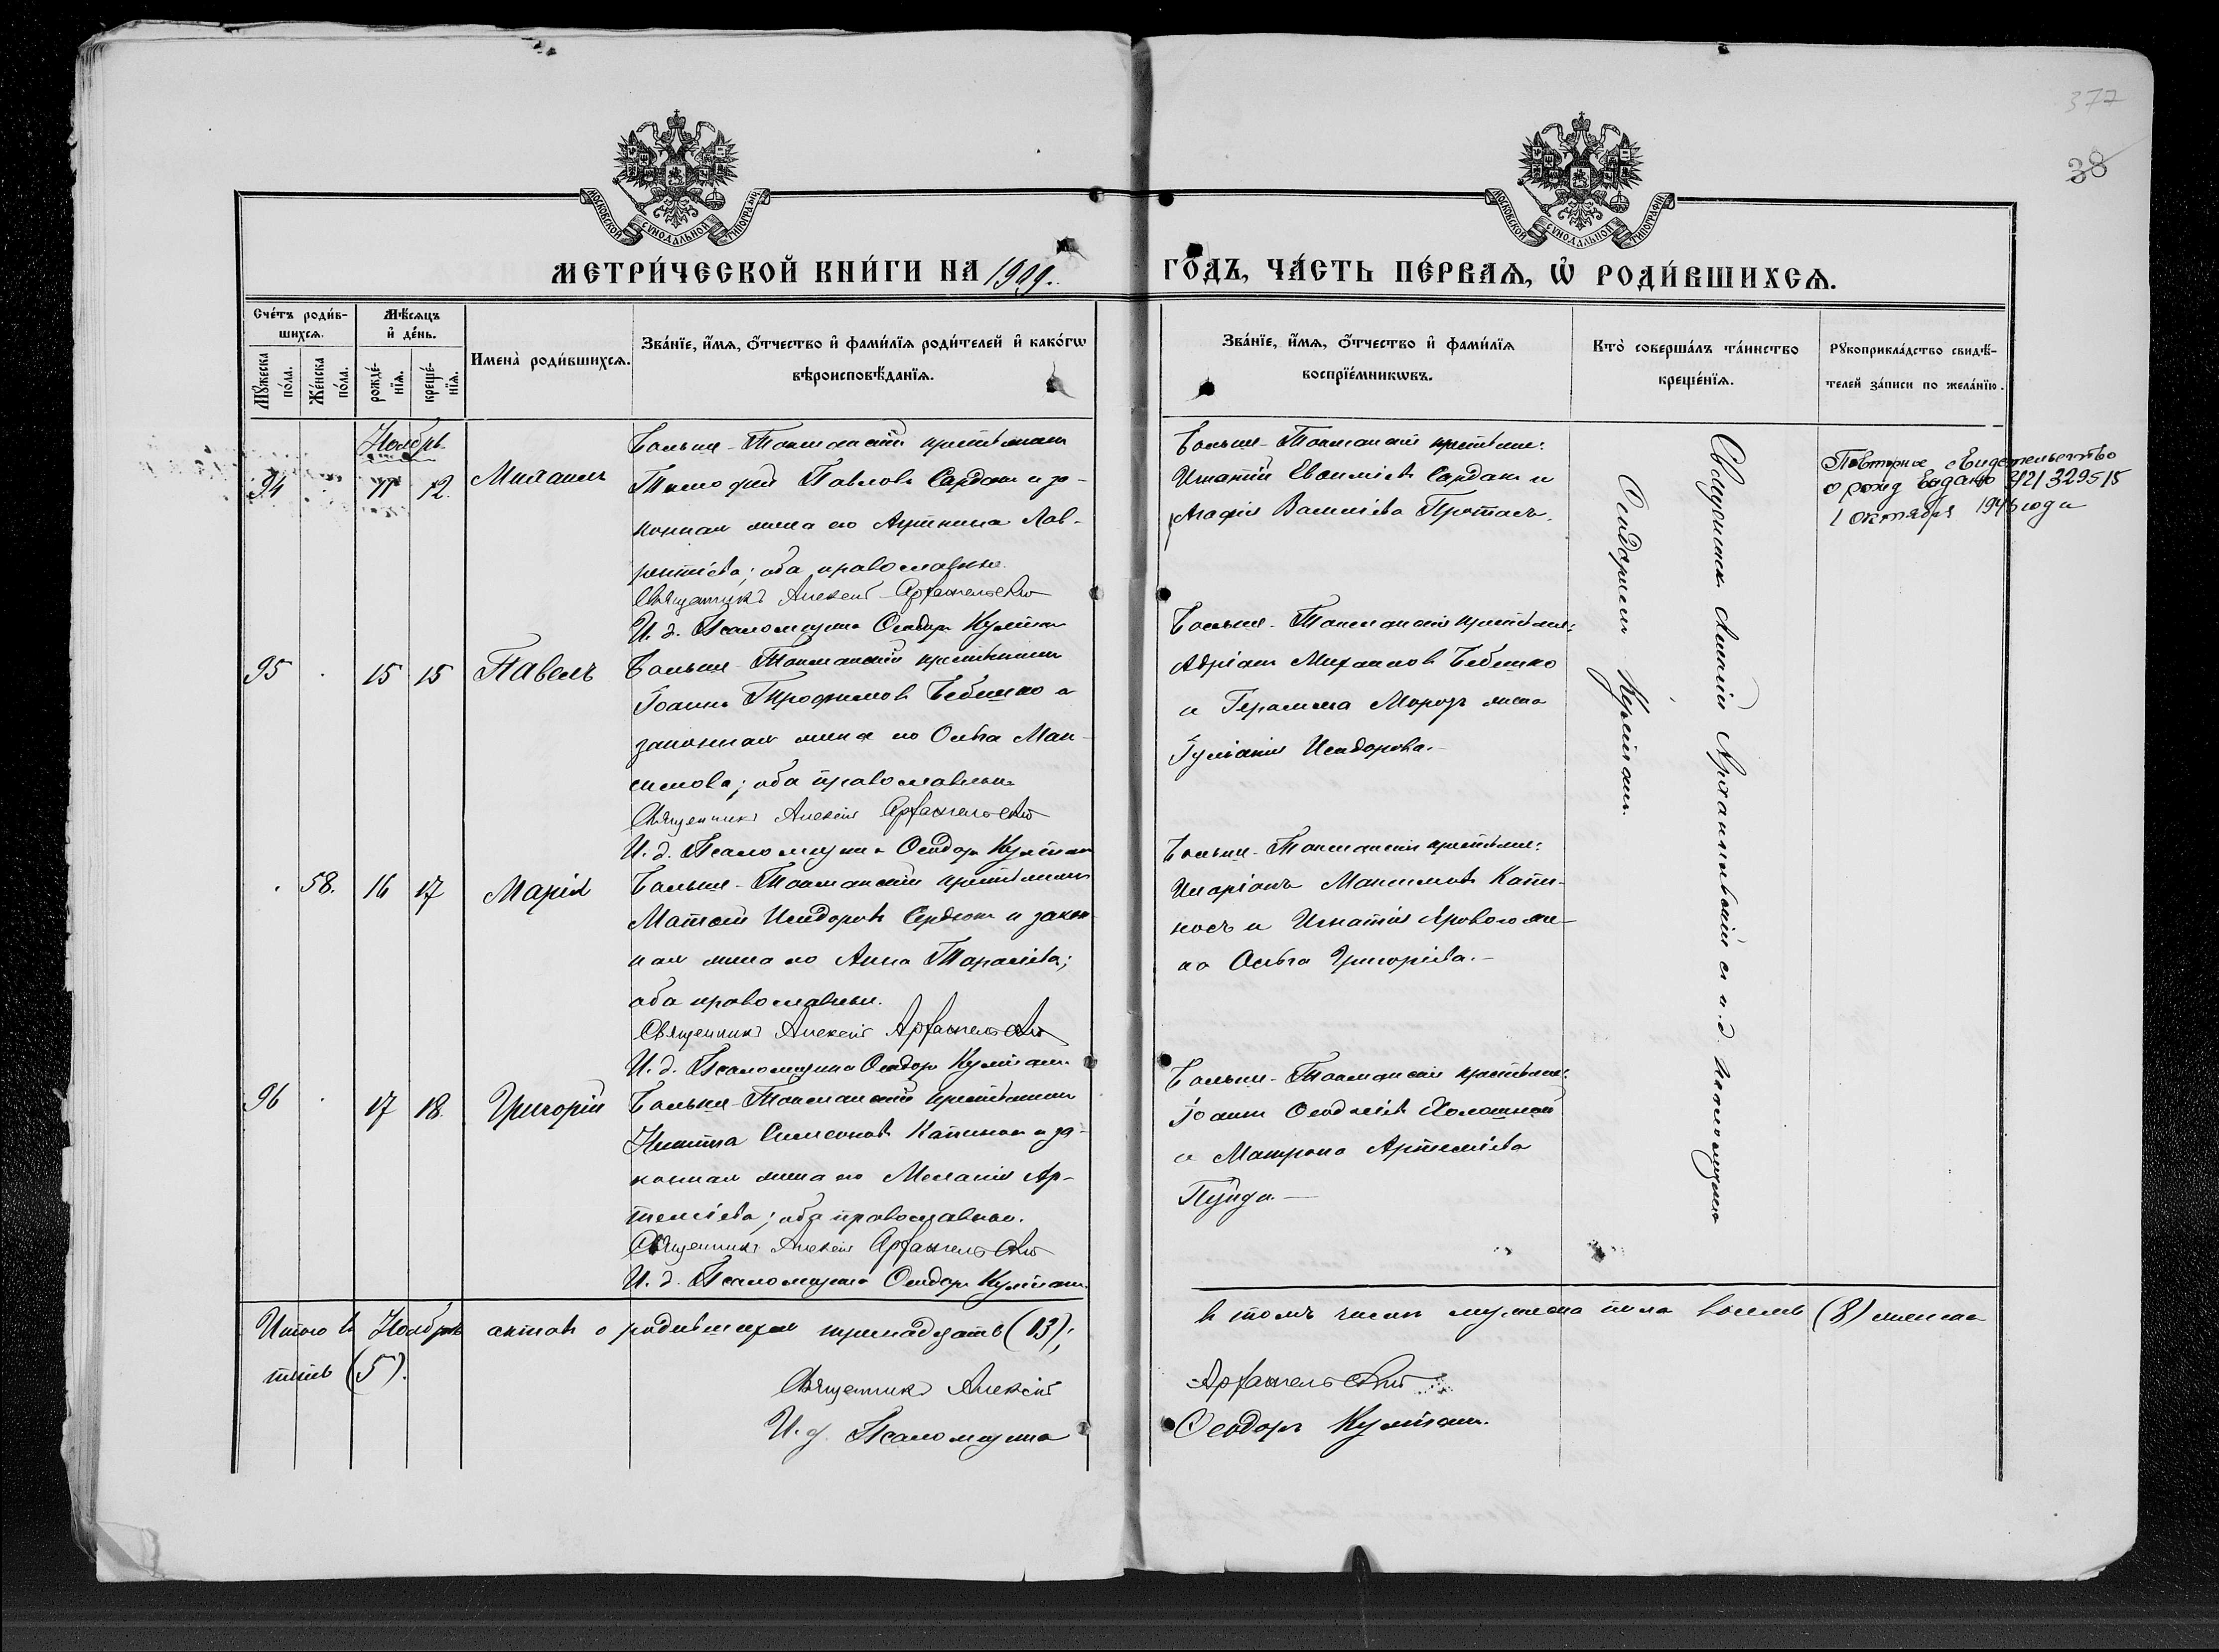 377
38
МОСКОВСКОЙ СѴНОДАЛЬНОЙ ТИПОГРАФІИ
МОСКОВСКОЙ СѴНОДАЛЬНОЙ ТИПОГРАФІИ
МЕТРИ́ЧЕСКОЙ КНИ́ГИ НА 1909.
ГО́ДЪ, ЧА́СТЬ ПЕ́РВАѦ, Ѡ҆ РОДИ́ВШИХСѦ.
Сче́тъ роди́в-
шихсѧ.
Мꙋ́жеска по́ла.
Же́нска по́ла.
Мѣ́сѧцъ
и҆ де́нь.
рожде́-нїѧ.
креще́-нїѧ.
Имена̀ роди́вшихсѧ.
Зва́нїе, и҆́мѧ, ѻ҆́тчество и҆ фами́лїѧ роди́телей и҆ како́гѡ
вѣроисповѣ́данїѧ.
Зва́нїе, и҆́мѧ, ѻ҆́тчество и҆ фами́лїѧ
воспрїе́мникѡвъ.
Кто̀ соверша́лъ та́инство
креще́нїѧ.
Рꙋкоприкла́дство свидѣ́-
телей за́писи по жела́нїю.
Ноябрь
94 11 12 Михаилъ
Больше-Токмакскій крестьянинъ
Тимофей Павловъ Сардакъ и за-
конная жена его Лав-
рентіева; оба православные.
Священникъ Алексій Архангельскій
И. д. Псаломщика Ѳеодоръ
Больше-Токмакскіе крестьяне:
Игнатій Евѳиміевъ Сардакъ и
Агафія Василіева Протасъ.
Священникъ Алексій Архангельскій съ и. д. псаломщика
Ѳеодоромъ
Повторное свидетельство
о рожд выдано 321329515
1 октября 1946 года
95 15 15 Павелъ
Больше-Токмакскій крестьянинъ
Іоаннъ Трофимовъ Бебешко и
законная жена его Ольга Мак-
симова; оба православные
Священникъ Алексій Архангельскій
И. д. Псаломщика Ѳеодоръ
Больше-Токмакскіе крестьяне:
Адріанъ Михаиловъ Бебешко
и Герасима Морозъ жена
Іуліанія Исидорова.
58. 16 17 Марія
Больше-Токмакскій крестьянинъ
Матѳей Исидоровъ Сердюкъ и закон-
ная жена его Анна Тарасіева;
оба православные.
Священникъ Алексій Архангельскій
И. д. Псаломщика Ѳеодоръ
Больше-Токмакскіе крестьяне:
Иларіонъ Максимовъ Капи-
носъ и Игнатія Ярового же-
на Ольга Григоріева.
96 17 18. Григорій
Больше-Токмакскій крестьянинъ
Никита Симеоновъ и за-
конная жена его Меланія Ар-
теміева; оба православные.
Священникъ Алексій Архангельскій
И. д. Псаломщика Ѳеодоръ
Больше-Токмакскіе крестьяне:
Іоаннъ
и Матрона Артеміева
Итого въ Ноябрѣ актовъ о родившихся тринадцать (13);
въ томъ числѣ мужеска пола восемь (8) женска
пять (5).
Священникъ Алексій Архангельскій
И. д. Псаломщика Ѳеодоръ